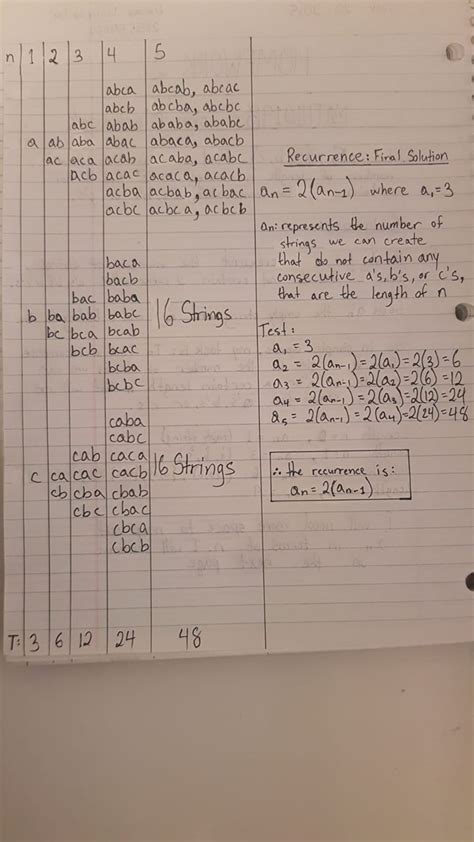 n 1 2 3 4 5
abca abcab, abcac
abcb abcba, abcbc
abc abab ababa, ababc
a ab aba abac abaca, abacb
ac aca acab acaba, acabc
acb acac acaca, acacb
acba acbab, acbac
acbc acbca, acbcb
baca
bacb
bac baba
b ba bab babc 16 Strings
bc bca bcab
bcb bcac
bcba
bcbc
caba
cabc
cab caca
c ca cac cacb 16 Strings
cb cba cbab
cbc cbac
cbca
cbcb
T: 3 6 12 24 48
Recurrence: Final Solution
an = 2(an-1) where a1=3
an: represents the number of
strings we can create
that do not contain any
consecutive a's, b's, or c's,
that are the length of n
Test:
a1 = 3
a2 = 2(an-1)=2(a1)=2(3)=6
a3 = 2(an-1)=2(a2)=2(6)=12
a4 = 2(an-1)=2(a3)=2(12)=24
a5 = 2(an-1)=2(a4)=2(24)=48
∴ the recurrence is:
an = 2(an-1)